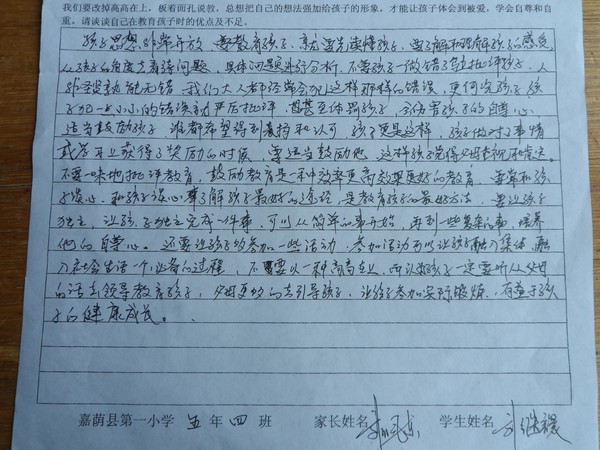 我们要改掉高高在上，板着面孔说教，总想把自己的想法强加给孩子的形象，才能让孩子体会到被爱，学会自尊和自
重。请谈谈自己在教育孩子时的优点及不足。
孩子思想非常开放，要教育孩子，就要先读懂孩子，要了解和理解孩子的感受
从孩子的角度去看待问题，具体问题进行分析，不要孩子一做错就批评孩子，人
非圣贤孰能无错，我们大人都经常会犯这样那样的错误，更何况孩子，孩
子犯一点小小的错误就严厉批评，甚至体罚孩子，会伤害孩子的自尊心。
适当鼓励孩子，谁都希望得到表扬和认可，孩子更是这样，孩子做对了事情
或学习上获得了奖励的时候，要适当鼓励他，这样孩子觉得父母重视和肯定。
不要一味地批评教育，鼓励教育是一种效率更高效果更好的教育，要常和孩
子谈心，和孩子谈心是了解孩子最好的途径，是教育孩子的最好方法，要让孩子
独立，让孩子独立完成一件事，可以从简单的事开始，再到一些复杂的事，培养
他们的自尊心。还要让孩子多参加一些活动，参加活动可以让孩子融入集体，融
入社会生活一个必备的过程，不要以一种高高在上，所以做孩子一定要听从父母
的话去领导教育孩子，父母更多的去引导孩子，让孩子参加实际锻炼，有益于孩
子的健康成长。
嘉荫县第一小学 五 年 四 班 家长姓名 学生姓名